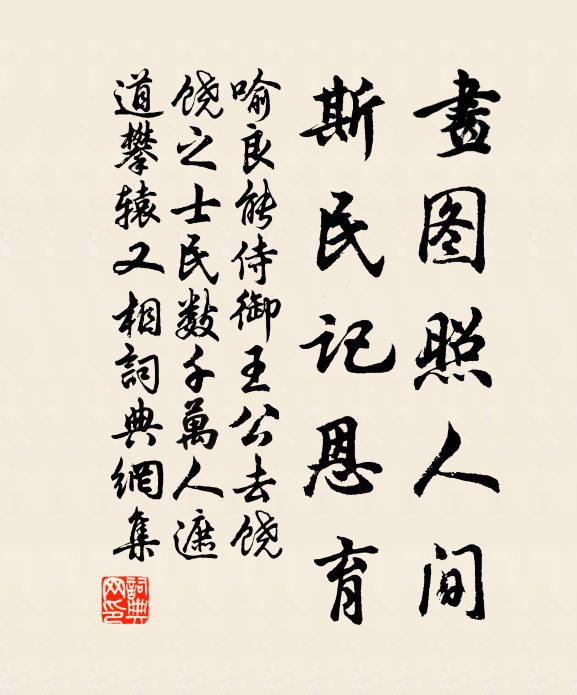 畫图照人间
斯民记恩育
喻良能侍御王公去饶
饶之士民数千萬人遮
道攀辕又相詞典網集
詞典網印